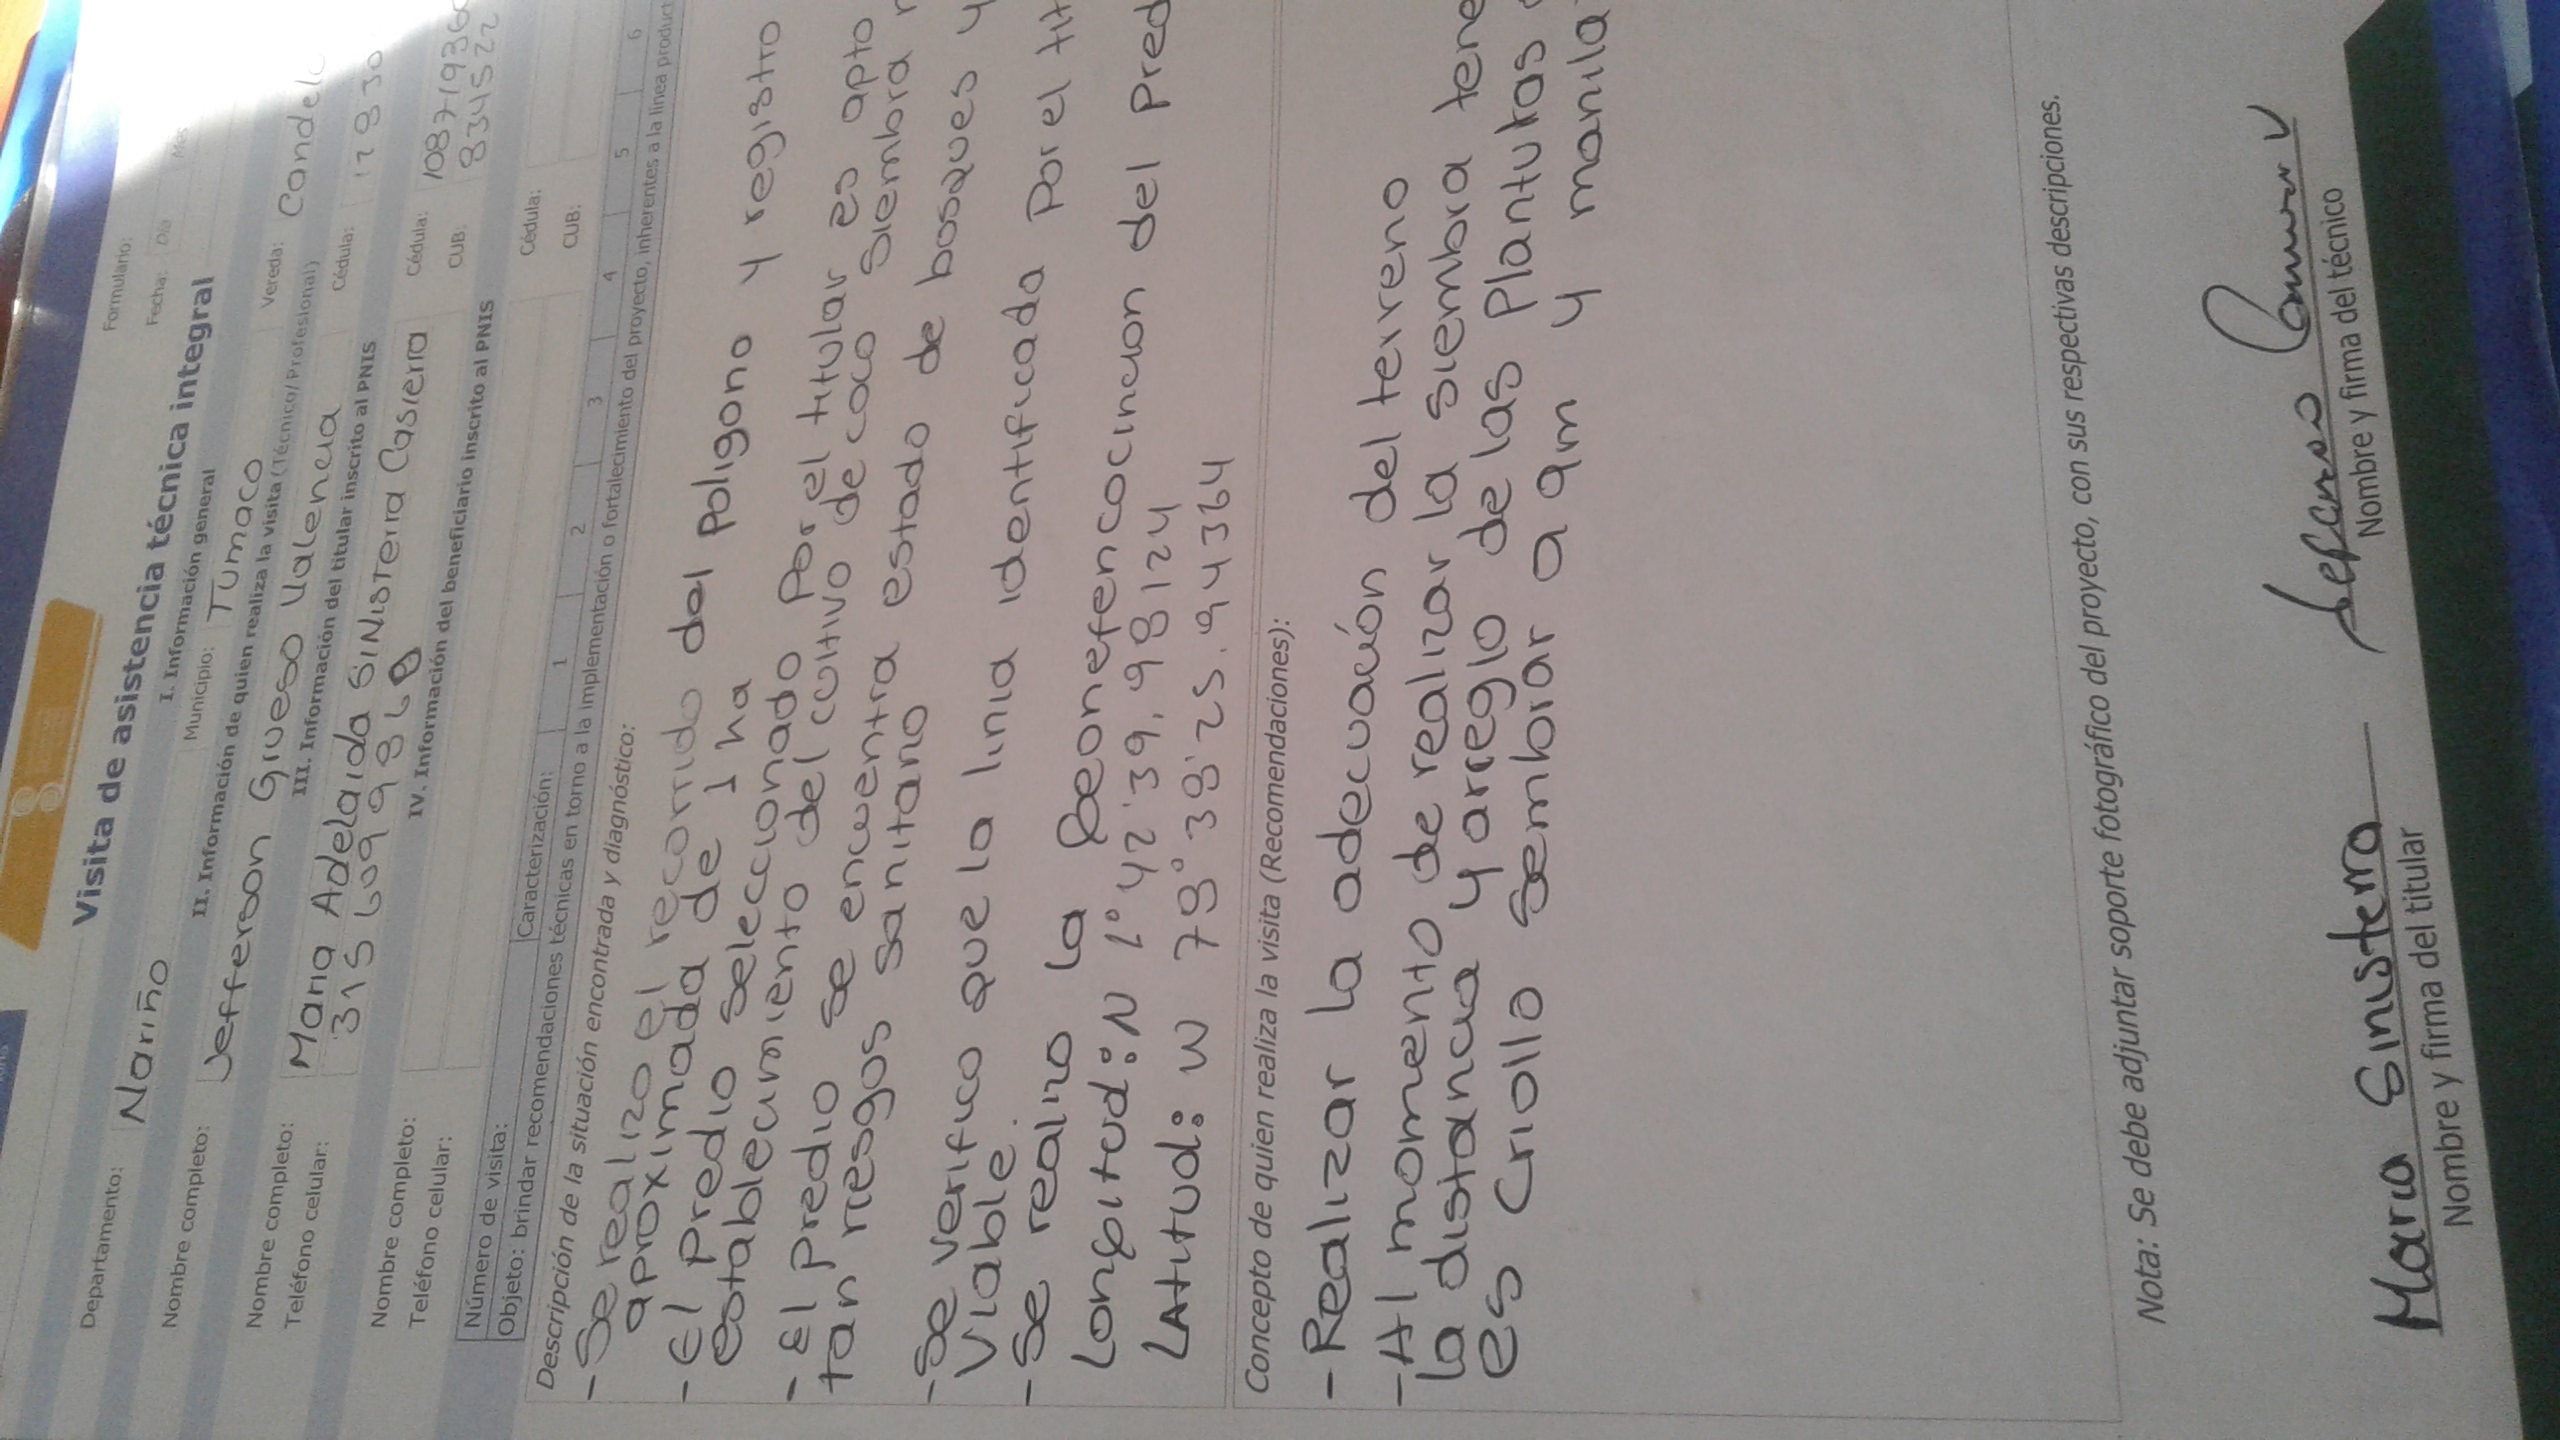 Visita de asistencia técnica integral
Formulario:
Fecha: Día Mes
I. Información general
Departamento: Nariño Municipio: Tumaco Vereda:
II. Información de quien realiza la visita (Técnico/Profesional)
Nombre completo: Jefferson Grueso Valencia Cédula:
III. Información del titular inscrito al PNIS
Nombre completo: Maria Adelaida Sinisterra Casierra Cédula:
Teléfono celular: CUB:
IV. Información del beneficiario inscrito al PNIS
Nombre completo: Cédula:
Teléfono celular: CUB:
Número de visita: Caracterización: 1 2 3 4 5 6
Objeto: brindar recomendaciones técnicas en torno a la implementación o fortalecimiento del proyecto, inherentes a la línea
Descripción de la situación encontrada y diagnóstico:
- Se realizo el recorrido del poligono y registro
aproximada de 1 ha
- El predio seleccionado por el titular es apto
establecimiento del cultivo de coco siembra
- El predio se encuentra estado de bosques y
tan riesgos sanitario
- Se verifico que la linia identificada por el
viable.
- Se realizo la Geonefencocincion del
Longitud: N 1° 42' 39.98124
Latitud: W 78° 38' 25.94364
Concepto de quien realiza la visita (Recomendaciones):
- Realizar la adecuación del terreno
- Al momento de realizar la siembra
la distancia y arreglo de las plantulas
es criollo sembrar a 9m y manila
Nota: Se debe adjuntar soporte fotográfico del proyecto, con sus respectivas descripciones.
Maria Sinisterra
Nombre y firma del titular
Nombre y firma del técnico